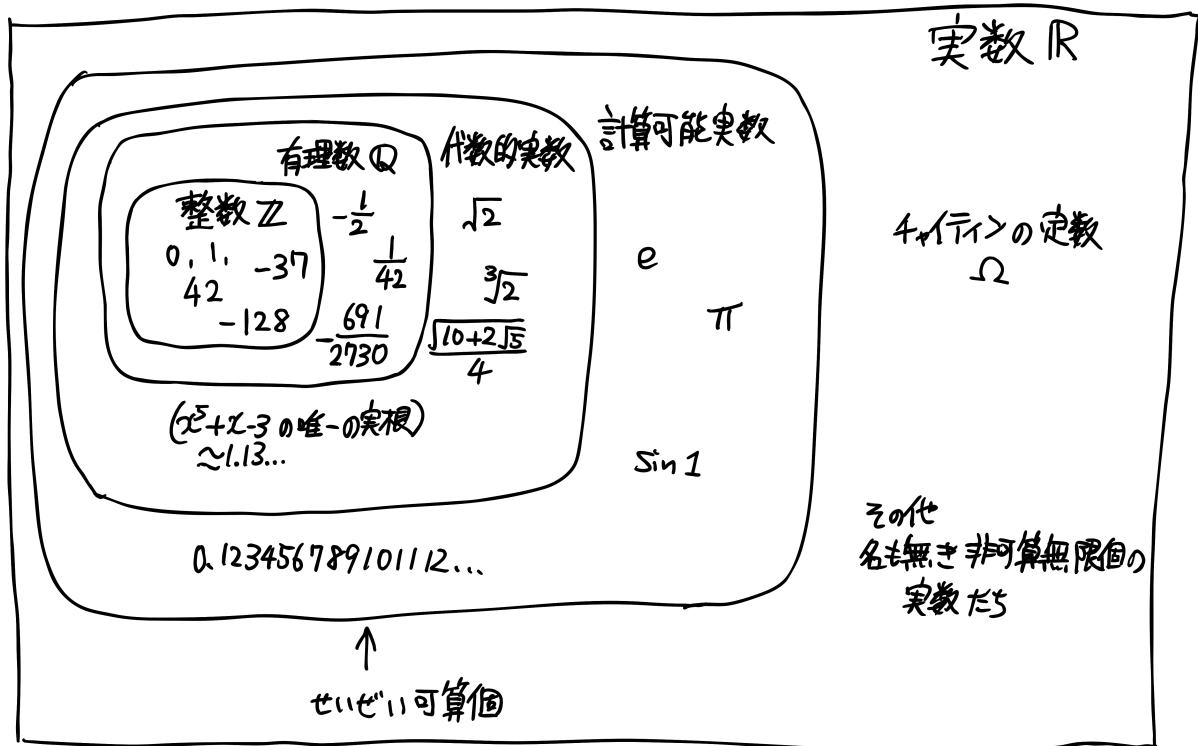 実数 ℝ
計算可能実数
代数的実数
有理数 ℚ
整数 ℤ
0, 1,
-37
42
-128
-1/2
1/42
-691/2730
√2
∛2
√(10+2√5)/4
(x⁵+x-3の唯一の実根)
≈1.13...
e
π
sin 1
0.123456789101112...
チャイティンの定数
Ω
その他
名も無き非可算無限個の
実数たち
↑
せいぜい可算個